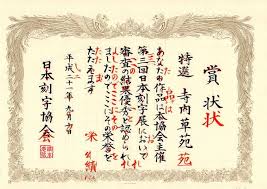 賞状
状
特選 寺内草苑
苑
あなたの作品は本協会主催
第三回日本刻字展において
審査の結果優秀と認められ
ましたのでここにその栄誉を
たたえます
平成二十一年九月
日本刻字協会